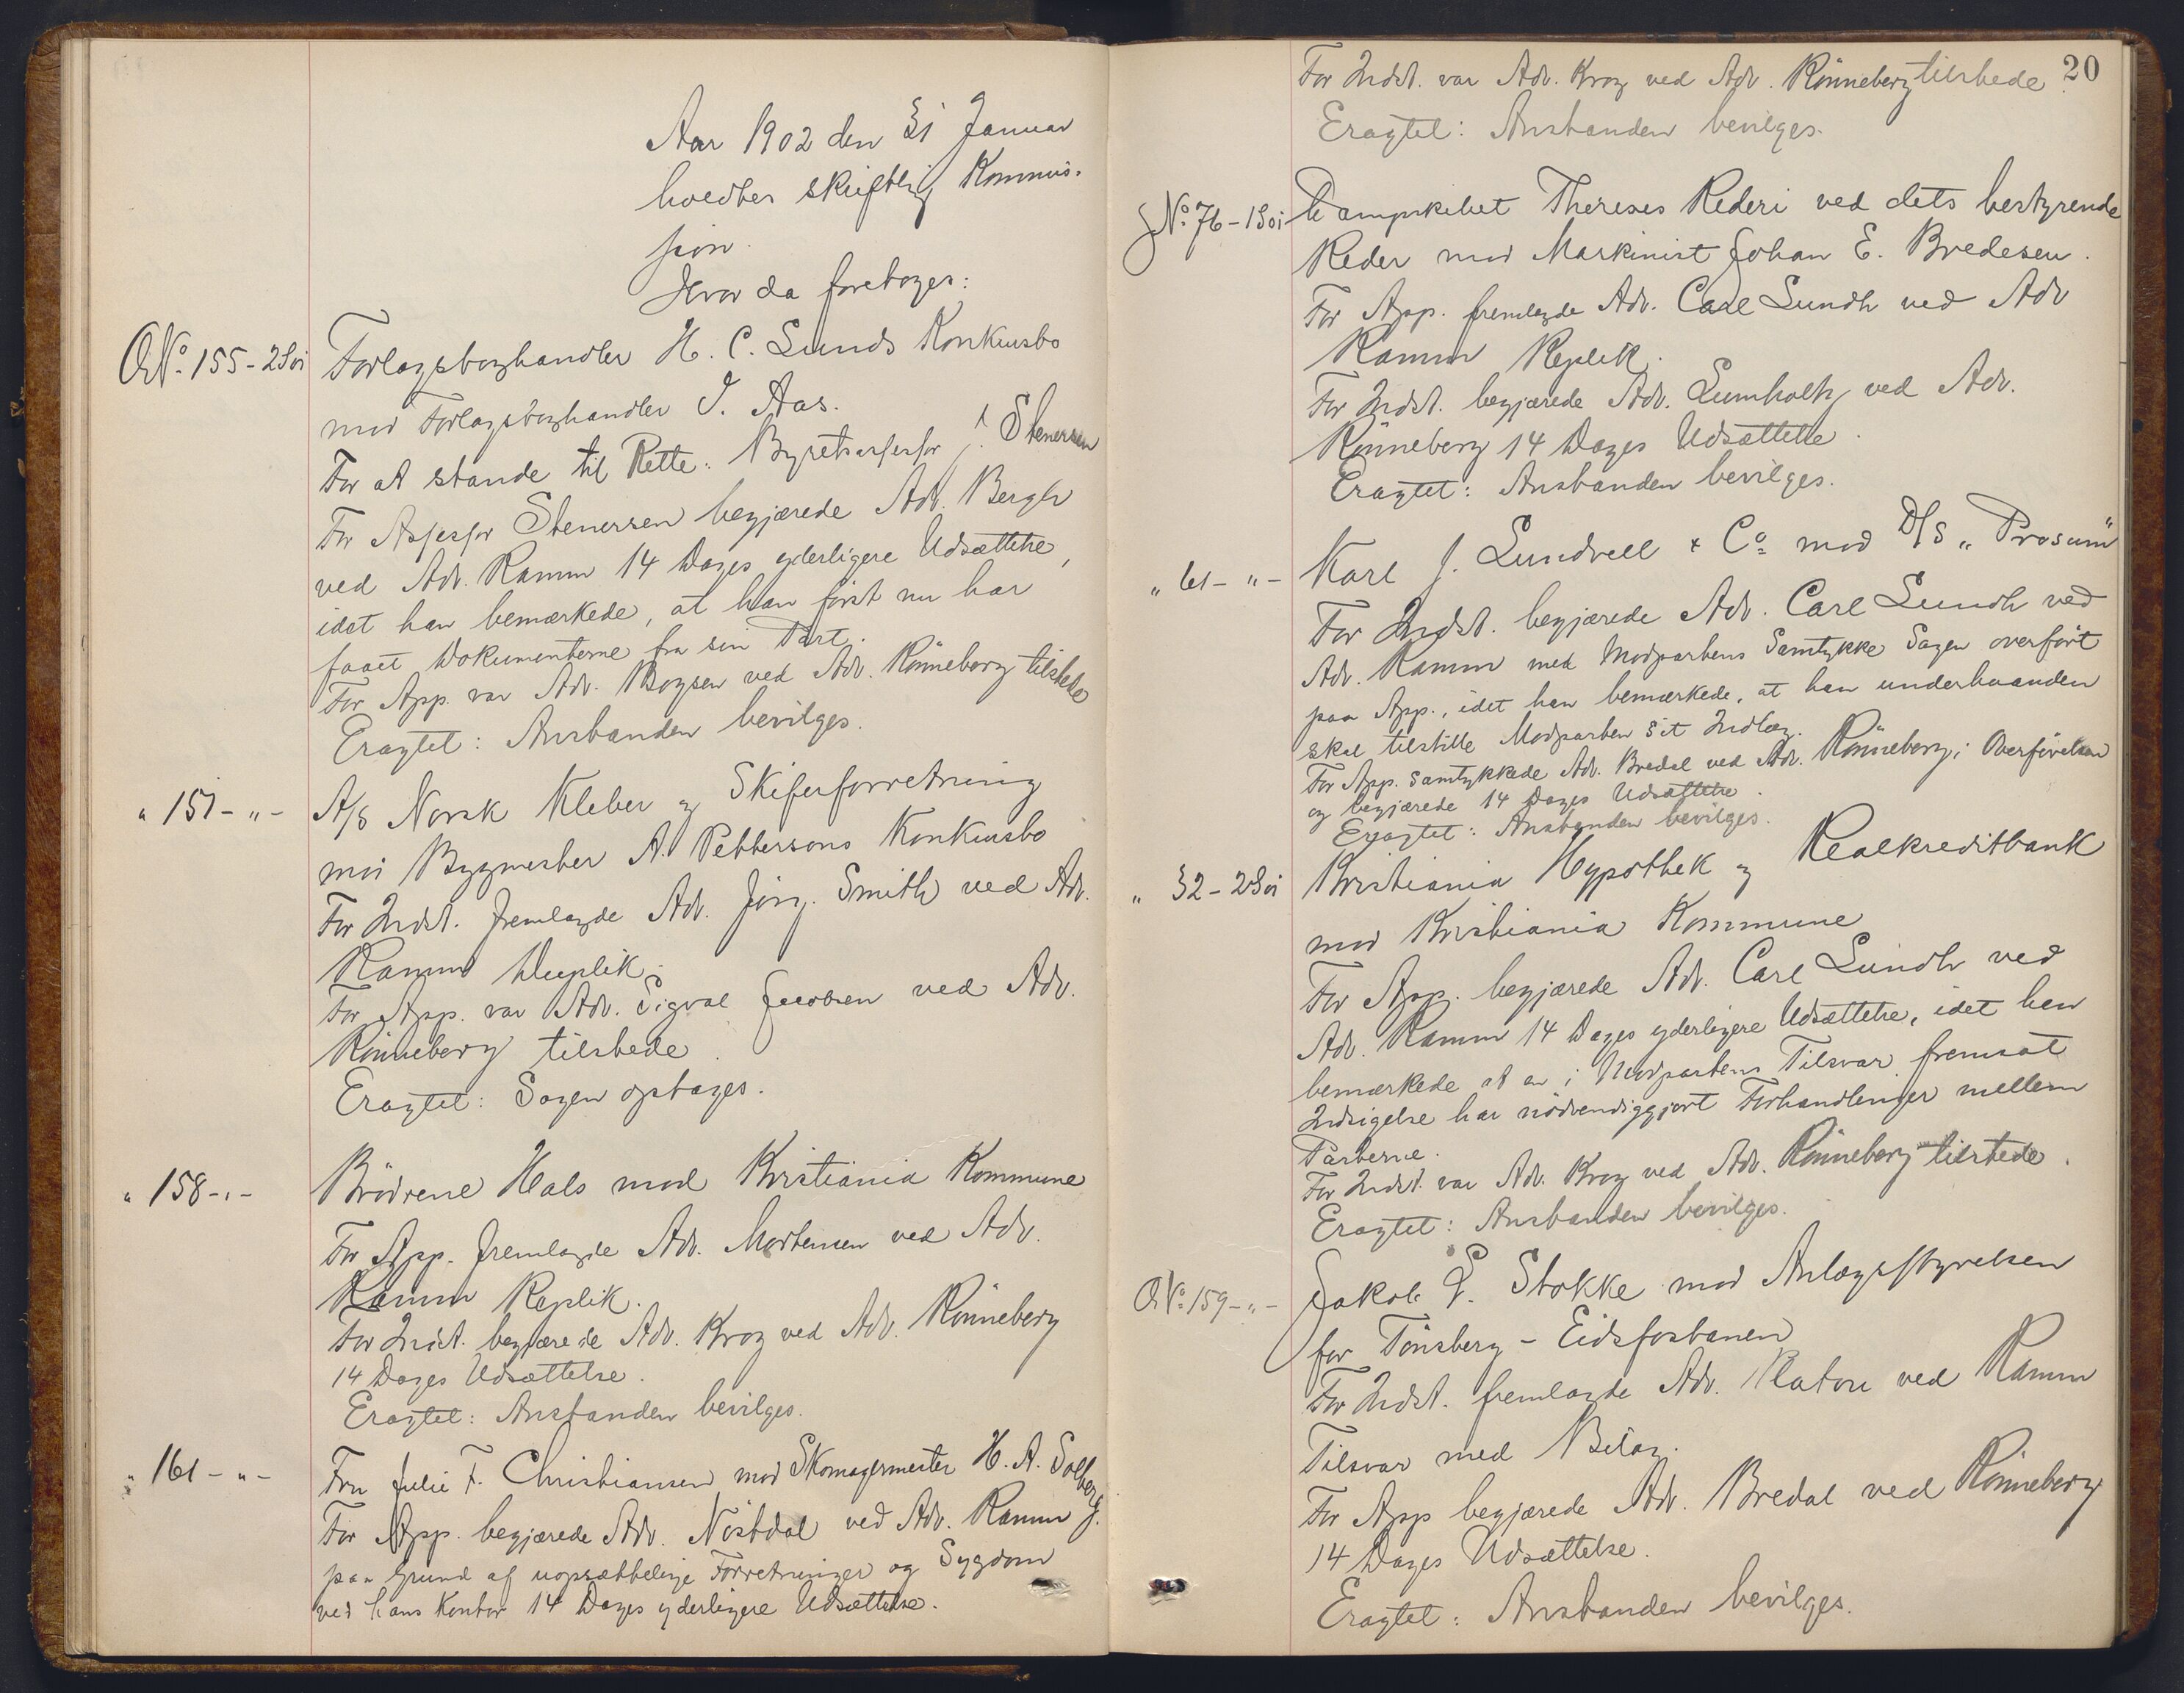 Aar 1902 den 31 Januar
holdtes skriftlig Kommis-
sion.
Hvor da foretoges:
ONo. 155-2Soi
Forlagsboghandler H. C. Lunds Konkursbo
mod Forlagsboghandler I. Aas.
For at stande til Rette: Byretsassessor J. Stenersen
For Assessor Stenersen begjærede Adv. Bergh
ved Adv. Ramm 14 Dages yderligere Udsættelse,
idet han bemærkede, at han først nu har
faaet Dokumenterne fra sin Part.
For App. var Adv. Boysen ved Adv. Rönneberg tilstede
Eragtet: Anstanden bevilges.
" 157-"-
A/S Norsk Kleber og Skiferforretning
mod Bygmester A. Pettersons Konkursbo
For Indst. fremlagde Adv. Jörg. Smith ved Adv.
Ramm Duplik.
For App. var Adv. Sigval Jacobsen ved Adv.
Rönneberg tilstede.
Eragtet: Sagen optages.
" 158-"-
Brödrene Hals mod Kristiania Kommune
For App. fremlagde Adv. Mortensen ved Adv.
Ramm Replik.
For Indst. begjærede Adv. Krog ved Adv. Rönneberg
14 Dages Udsættelse.
Eragtet: Anstanden bevilges.
" 161-"-
Fru Julie F. Christiansen mod Skomagermester H. A. Solberg.
For App. begjærede Adv. Nöstdal ved Adv. Ramm
paa Grund af uopsættelige Forretninger og Sygdom
ved hans Kontor 14 Dages yderligere Udsættelse.
20
For Indst. var Adv. Krog ved Adv. Rönneberg tilstede.
Eragtet: Anstanden bevilges.
JNo. 76-1Soi
Dampskibet Thereses Rederi ved dets bestyrende
Reder mod Maskinist Johan E. Bredesen.
For App. fremlagde Adv. Carl Lundh ved Adv
Ramm Replik.
For Indst. begjærede Adv. Lumholtz ved Adv.
Rönneberg 14 Dages Udsættelse.
Eragtet: Anstanden bevilges.
" 61-"-
Karl J. Lundvell & Co. mod D/S "Prosum"
For Indst. begjærede Adv. Carl Lundh ved
Adv. Ramm med Modpartens Samtykke Sagen overført
paa App., idet han bemærkede, at han underhaanden
skal tilstille Modparten sit Indlæg.
For App. samtykkede Adv. Bredal ved Adv. Rönneberg i Overførelsen
og begjærede 14 Dages Udsættelse.
Eragtet: Anstanden bevilges.
" 32-2Soi
Kristiania Hypothek og Realkreditbank
mod Kristiania Kommune
For App. begjærede Adv. Carl Lundh ved
Adv. Ramm 14 Dages yderligere Udsættelse, idet han
bemærkede at en i Modpartens Tilsvar fremsat
Indsigelse har nödvendiggjort Forhandlinger mellem
Parterne.
For Indst. var Adv. Krog ved Adv. Rönneberg tilstede.
Eragtet: Anstanden bevilges.
ONo. 159-"-
Jakob L. Stokke mod Anlægsstyrelsen
for Tönsberg - Eidsfosbanen
For Indst. fremlagde Adv. Platou ved Ramm
Tilsvar med Bilag.
For App begjærede Adv. Bredal ved Rönneberg
14 Dages Udsættelse.
Eragtet: Anstanden bevilges.